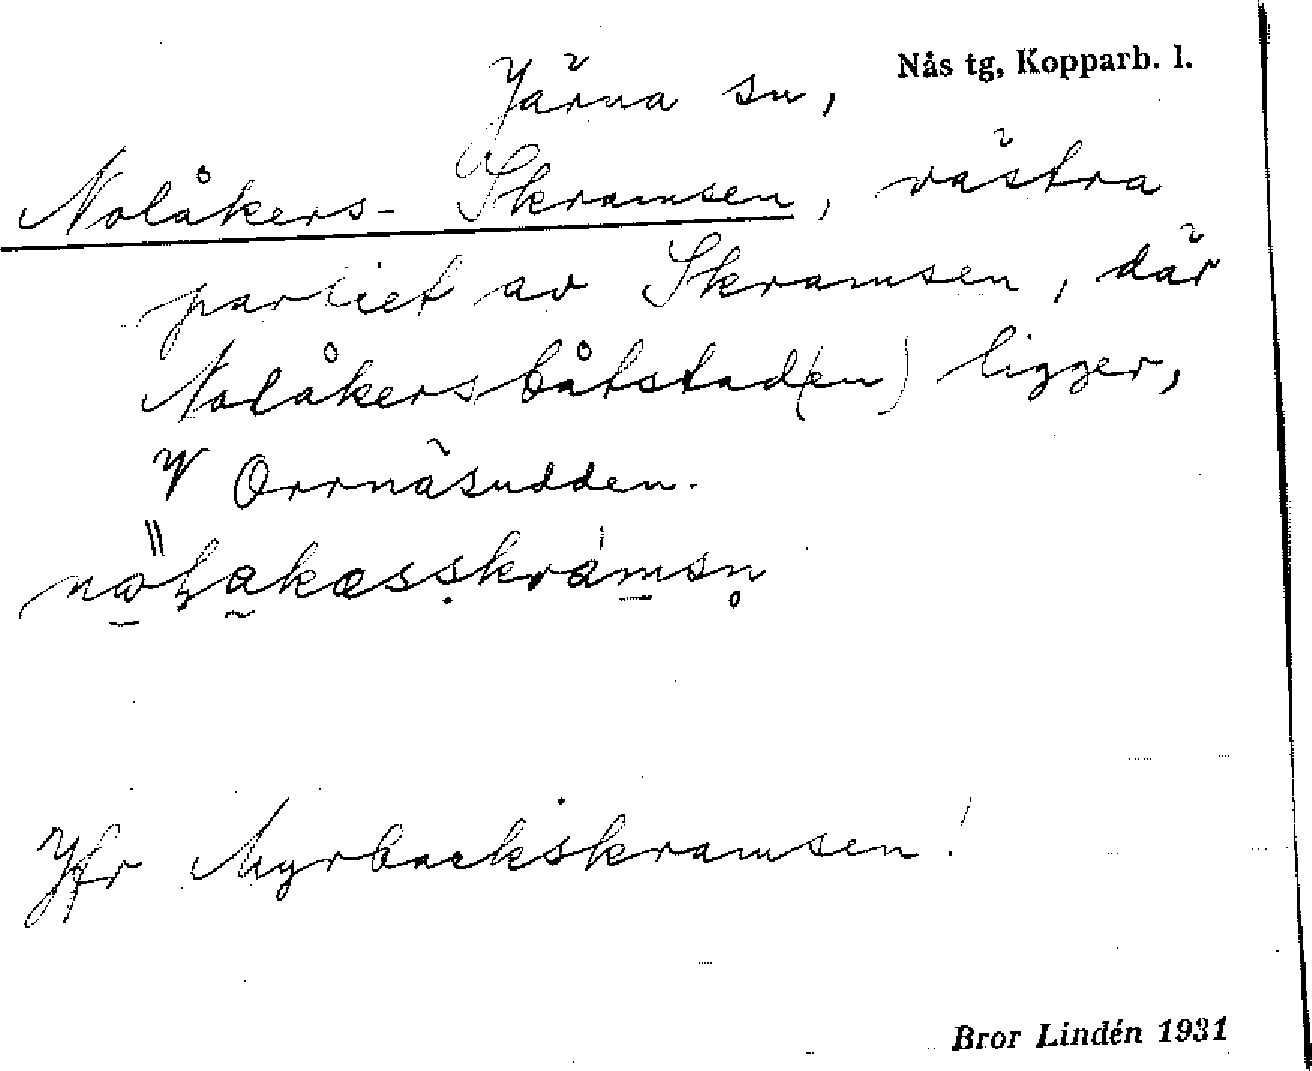 Nås tg, Kopparb. l.
Järna sn,
Nolåkers-Skramsen, västra
partiet av Skramsen, där
Nolåkersbåtstad(en) ligger,
V Orrnäsudden.
Jfr Myrbackskramsen!
Bror Lindén 1931